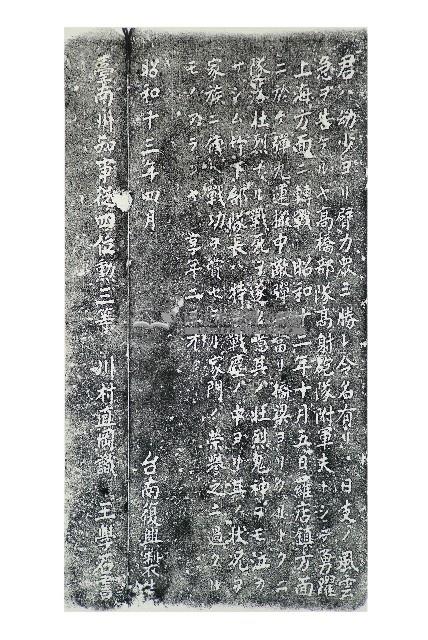 君ハ幼少ヨリ臂力衆ニ勝レ令名有リ、日支ノ風雲
急ヲ告ケルヤ高橋部隊高射砲隊附軍夫トシテ勇躍
上海方面ニ轉戰、昭和十二年十月五日羅店鎮方面
ニ於ケ彈丸運搬中敵彈ニ當リ橋梁ヨリクリークニ
墜落壮烈ナル戰死ヲ遂ク嗚其ノ壮烈鬼神ヲモ泣カ
サシム竹下部隊長ハ特ニ戰塵ノ中ヨリ其ノ状况ヲ
家族ニ ヘ戰功ヲ賞セラル家門ノ榮譽之ニ過クル
モノカラ 享年二 才
昭和十三年四月
台南復興製
臺南州知事從四位勲三等 川村直岡識 王學石書